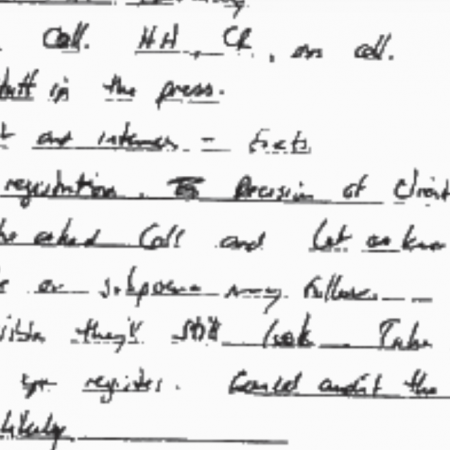 Call. HH, CR, on call.
in the press.
and interviews - facts
registration. Decision of client
asked Call and let us know
or subpoena may follow.
they'll still look. Take
register. Could audit the
likely.